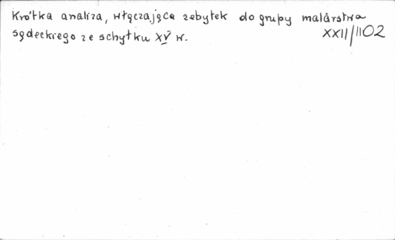 Krótka analiza, włączająca zabytek do grupy malarstwa
sądeckiego ze schyłku XV w.
XXII/1102